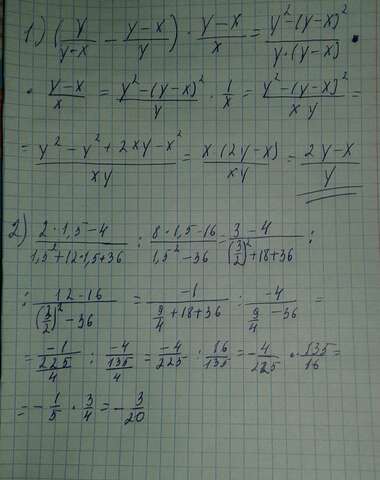 1.) (y/(y-x) - (y-x)/y) · (y-x)/x = (y²-(y-x)²)/(y·(y-x)) ·
· (y-x)/x = (y²-(y-x)²)/y · 1/x = (y²-(y-x)²)/(xy) =
= (y²-y²+2xy-x²)/(xy) = (x·(2y-x))/(xy) = (2y-x)/y
2) (2·1,5-4)/(1,5²+12·1,5+36) : (8·1,5-16)/(1,5²-36) = (3-4)/((3/2)²+18+36) :
: (12-16)/((3/2)²-36) = -1/(9/4+18+36) : -4/(9/4-36) =
= -1/(225/4) : -4/(135/4) = -4/225 : 16/135 = -4/225 · 135/16 =
= -1/5 · 3/4 = -3/20